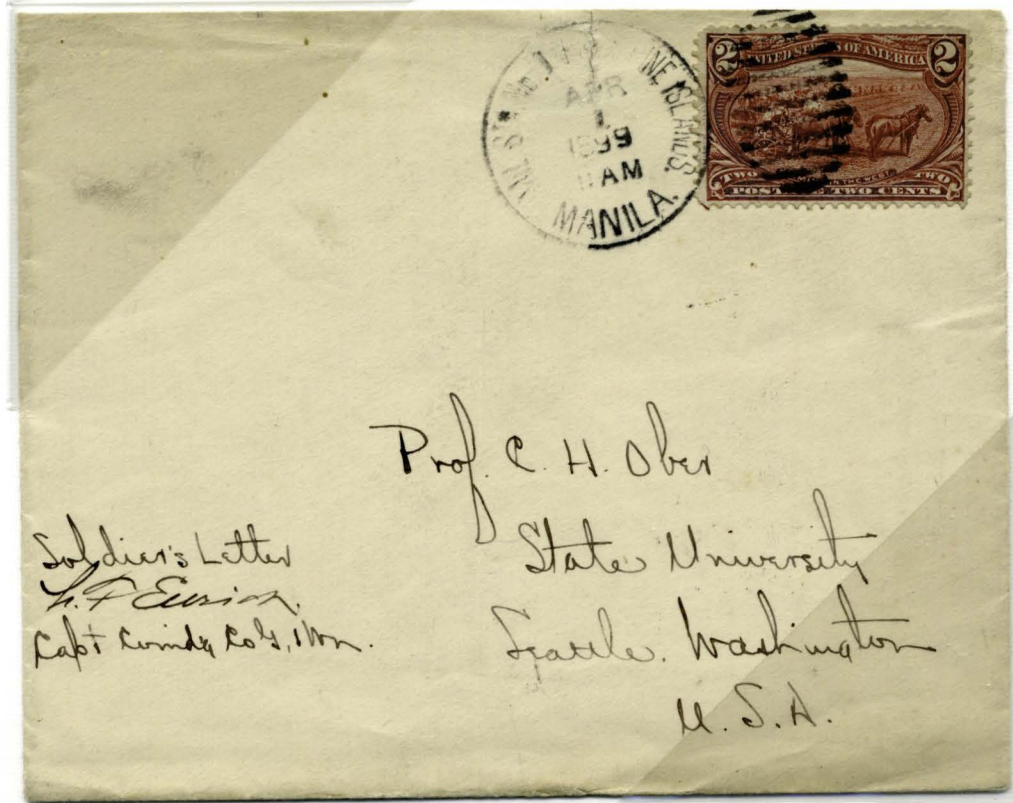 MIL. STA. No. 1 PHILIPPINE ISLANDS.
APR
1
1899
11 AM
MANILA.
2 UNITED STATES OF AMERICA 2
TWO TWO
POSTAGE TWO CENTS
Prof. C. H. Ober
State University
Seattle. Washington
U. S. A.
Soldier's Letter
Capt Comdg Co G, 1 Wn.